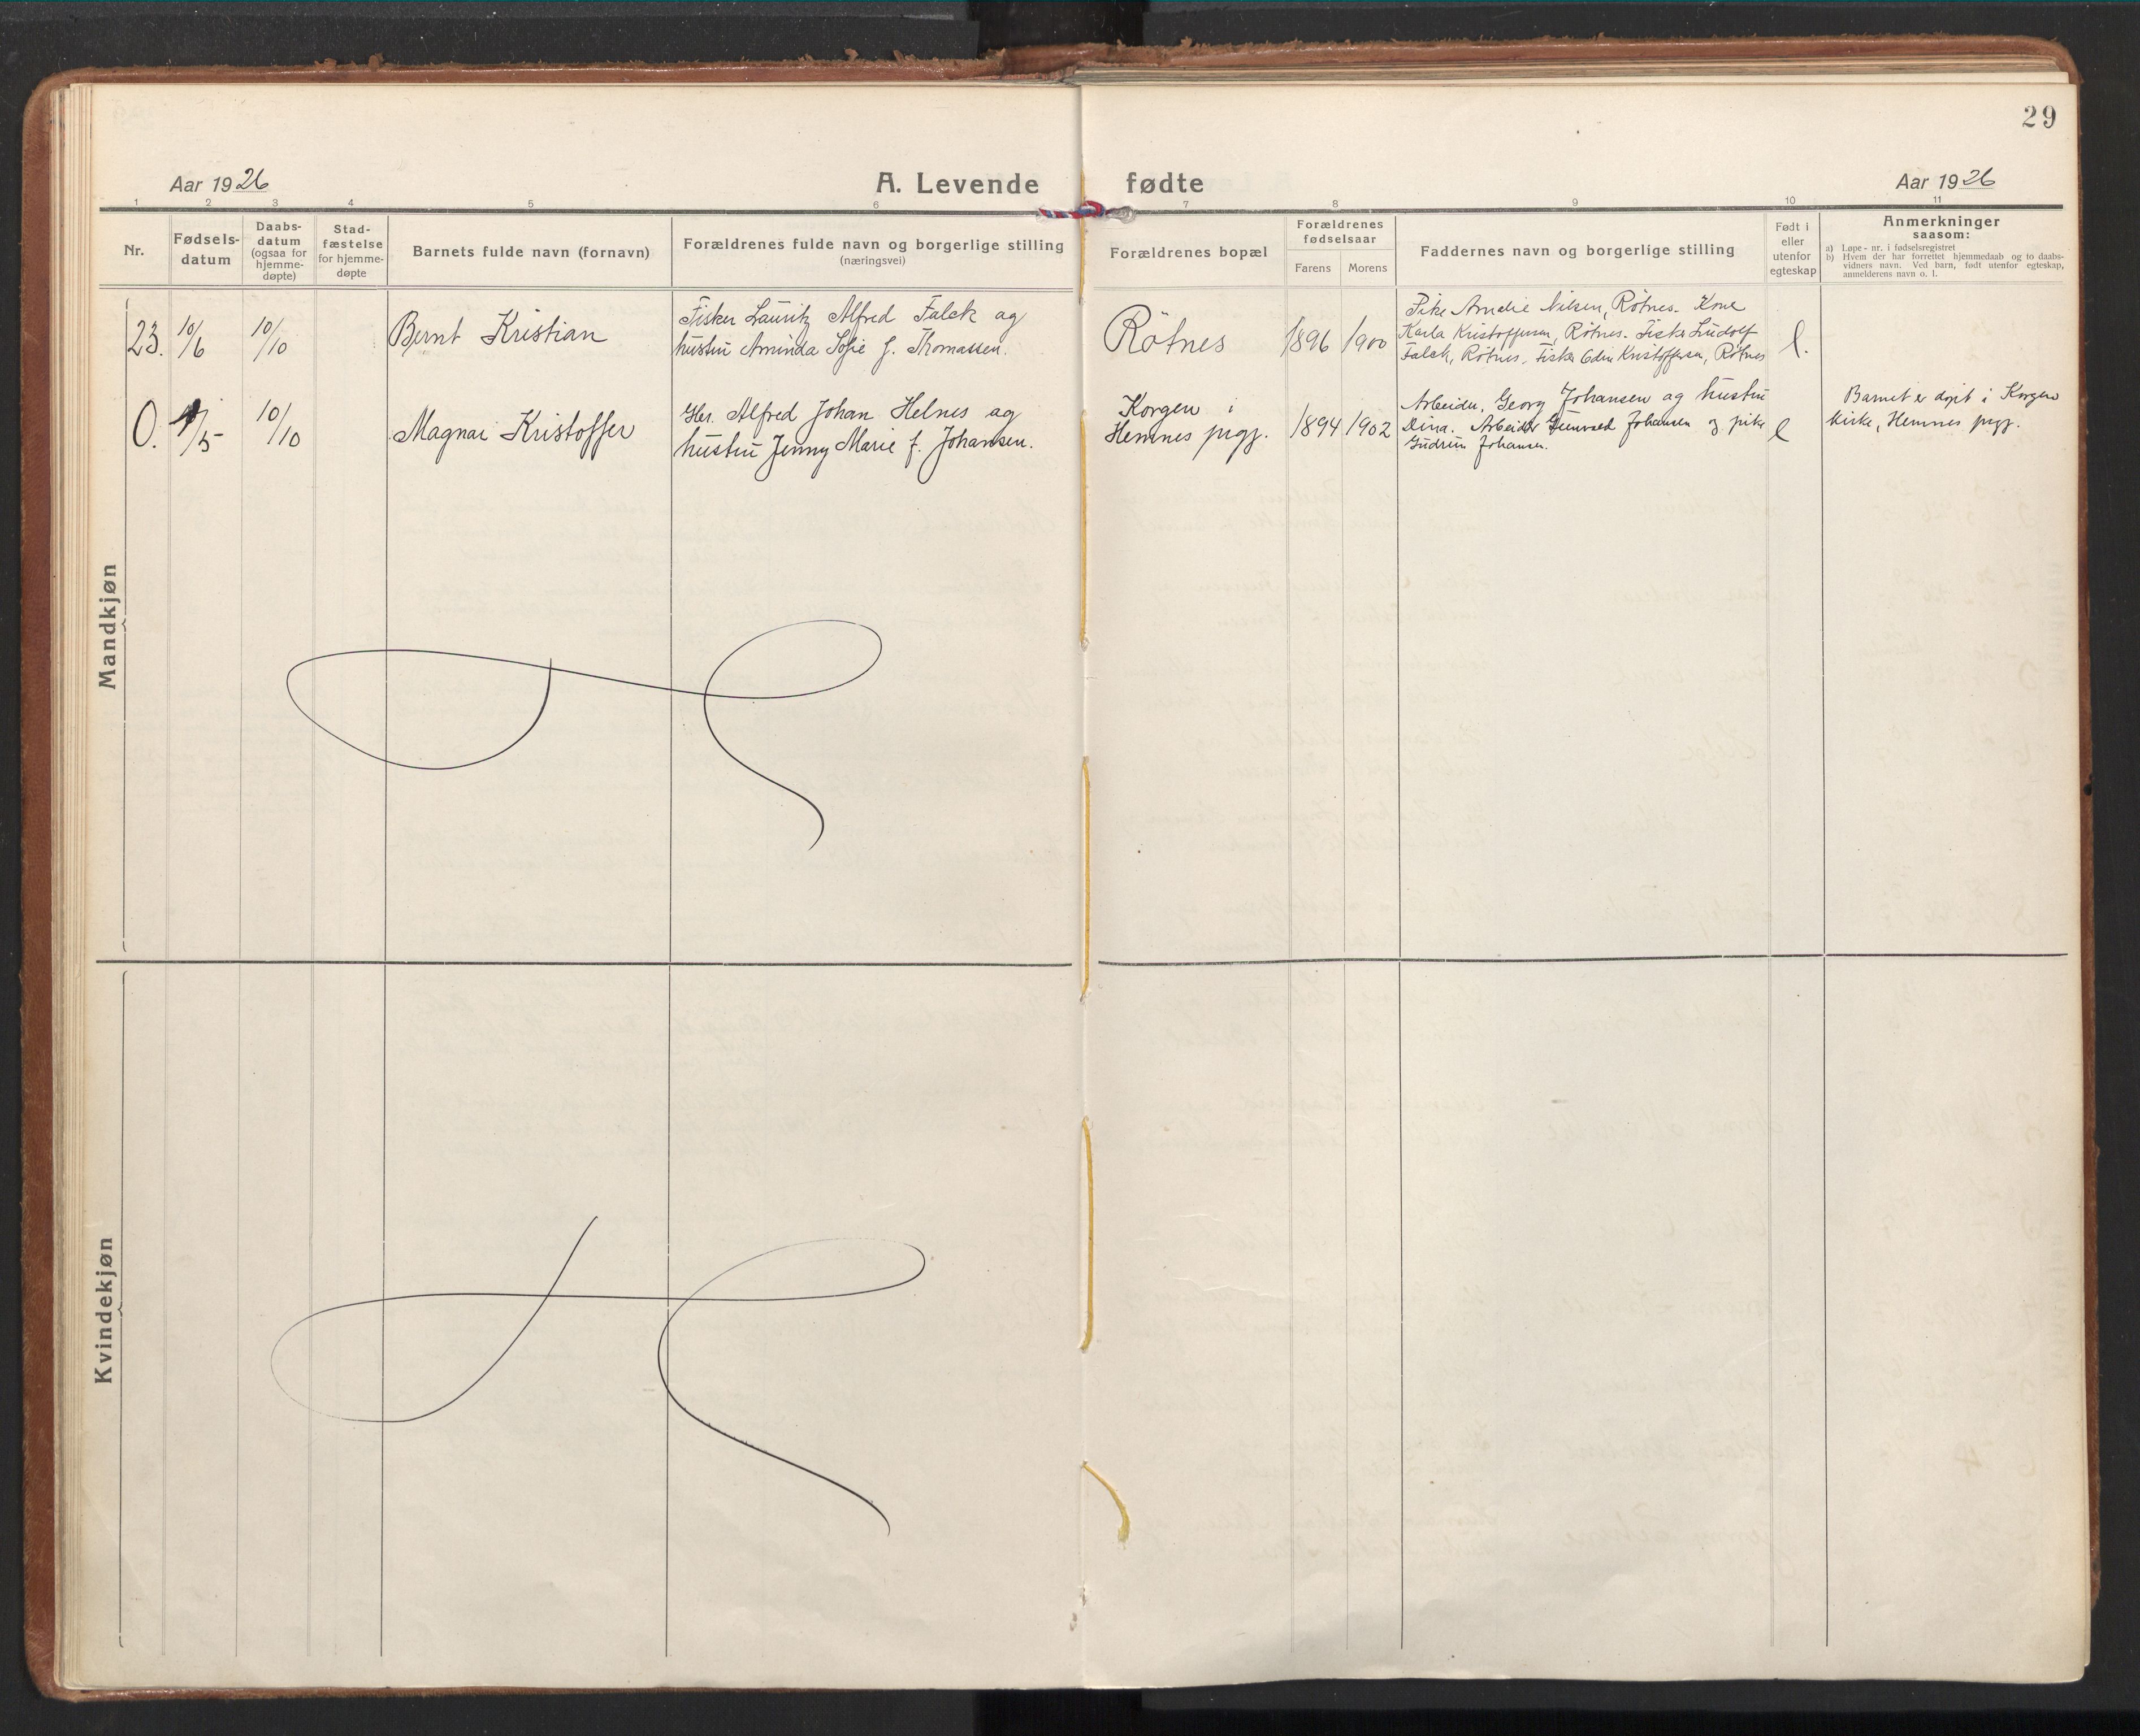 29
Aar 1926
A. Levende fødte
Aar 1926
1 2 3 4 5 6 7 8 9 10 11
Nr.
Fødsels-
datum
Daabs-
datum
(ogsaa for
hjemme-
døpte)
Stad-
fæstelse
for hjemme-
døpte
Barnets fulde navn (fornavn)
Forældrenes fulde navn og borgerlige stilling
(næringsvei)
Forældrenes bopæl
Forældrenes
fødselsaar
Farens Morens
Faddernes navn og borgerlige stilling
Født i
eller
utenfor
egteskap
Anmerkninger
saasom:
a) Løpe-nr. i fødselsregistret
b) Hvem der har forrettet hjemmedaab og to daabs-
vidners navn. Ved barn, født utenfor egteskap,
anmelderens navn o. l.
Mandkjøn
23. 10/6 10/10
Bernt Kristian
Fisker Lauritz Alfred Falck og
hustru Aminda Sofie f. Thomassen.
Rötnes
1896 1900
Pike Amelie Nilsen, Rötnes. Kone
Karla Kristoffersen, Rötnes. Fisker Ludolf
Falck, Rötnes. Fisker Odin Kristoffersen, Rötnes
l.
0. /5 10/10
Magnar Kristoffer
Gbr. Alfred Johan Helnes og
hustru Jenny Marie f. Johansen.
Korgen i
Hemnes prgj.
1894 1902
Arbeider, Georg Johansen og hustru
Dina. Arbeider Johansen og pike
Gudrun Johansen.
l
Barnet er døpt i Korgen
kirke, Hemnes prgj.
Kvindekjøn